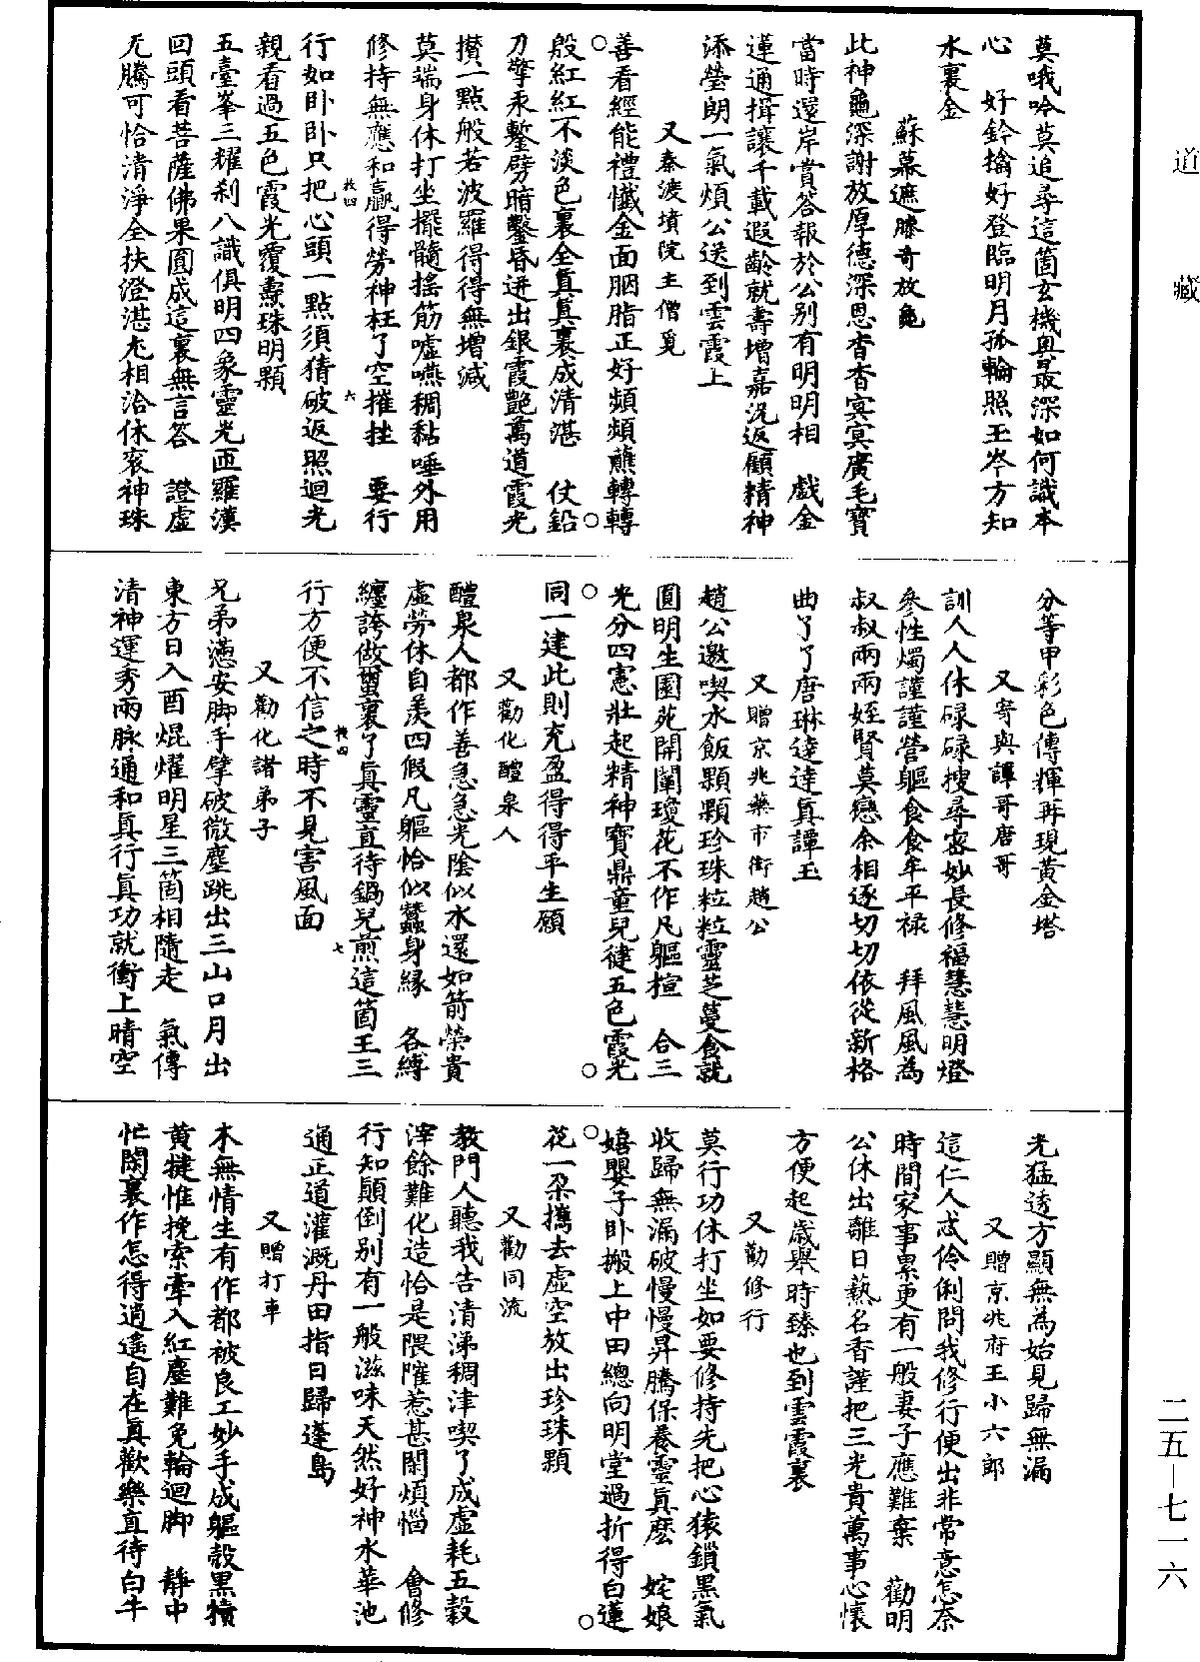 道藏
莫哦吟莫追尋這箇玄機奧最深如何識本
心　好鈴擒好登臨明月孤輪照玉岑方知
水裏金
蘇幕遮滕哥放龜
此神龜深謝放厚德深恩杳杳寘寘廣毛寶
當時還岸賞答報於公別有明明相　戲金
蓮通揖讓千載遐齡就壽增嘉況返顧精神
添瑩朗一氣煩公送到雲霞上
又秦渡墳院主僧覓
善看經能禮懺金面胭脂正好頻頻蘸轉轉
殷紅紅不淡色裏全真真裏成清湛　仗鉛
刀擎汞鏨劈暗鑿昏迸出銀霞艷萬道霞光
攢一點般若波羅得得無增減
莫端身休打坐擺髓搖筋噓嚥稠黏唾外用
修持無應和贏得勞神枉了空摧挫　要行
行如卧卧只把心頭一點須猜破返照迴光
親看過五色霞光覆燾珠明顆
五臺峯三耀剎八識俱明四象靈光匝羅漢
回頭看菩薩佛果圓成這裏無言答　證虛
无騰可恰清淨全扶澄湛尤相洽休衮神珠
分等甲彩色傳輝再現黃金塔
又寄與譚哥唐哥
訓人人休碌碌搜尋密妙長修福慧慧明燈
參性燭謹謹營軀食食牟平祿　拜風風為
叔叔兩兩姪賢莫戀余相逐切切依從新格
曲了了唐琳達達真譚玉
又贈京兆藥市街趙公
趙公邀喫水飯顆顆珍珠粒粒靈芝蔓食就
圓明生園苑開闡瓊花不作凡軀揎　合三
光分四憲壯起精神寶鼎童兒健五色霞光
同一建此則充盈得得平生願
又勸化醴泉人
醴泉人都作善急急光陰似水還如箭榮貴
虛勞休自羨四假凡軀恰似蠶身緣　各縛
纏誇做蠒裏了真靈直待鍋兒煎這箇王三
行方便不信之時不見害風面
又勸化諸弟子
兄弟懣安脚手擘破微塵跳出三山口月出
東方日入酉焜燿明星三箇相隨走　氣傳
清神運秀兩脉通和真行真功就衝上晴空
光猛透方顯無為始見歸無漏
又贈京兆府王小六郎
這仁人忒伶俐問我修行便出非常意怎奈
時間家事累更有一般妻子應難棄　勸明
公休出離日爇名香謹把三光貴萬事心懷
方便起歲舉時臻也到雲霞裏
又勸修行
莫行功休打坐如要修持先把心猿鎖黑氣
收歸無漏破慢慢昇騰保養靈真麽　姹娘
嬉嬰子卧搬上中田總向明堂過折得白蓮
花一朶攜去虛空放出珍珠顆
又勸同流
教門人聽我告清涕稠津喫了成虛耗五穀
滓餘難化造恰是隈隀惹甚閑煩惱　會修
行知顛倒別有一般滋味天然好神水華池
通正道灌溉丹田指日歸蓬島
又贈打車
木無情生有作都被良工妙手成軀殼黑犢
黃犍惟挽索牽入紅塵難免輪迴脚　靜中
忙閑裏作怎得逍遙自在真歡樂直待白牛
二五—七一六